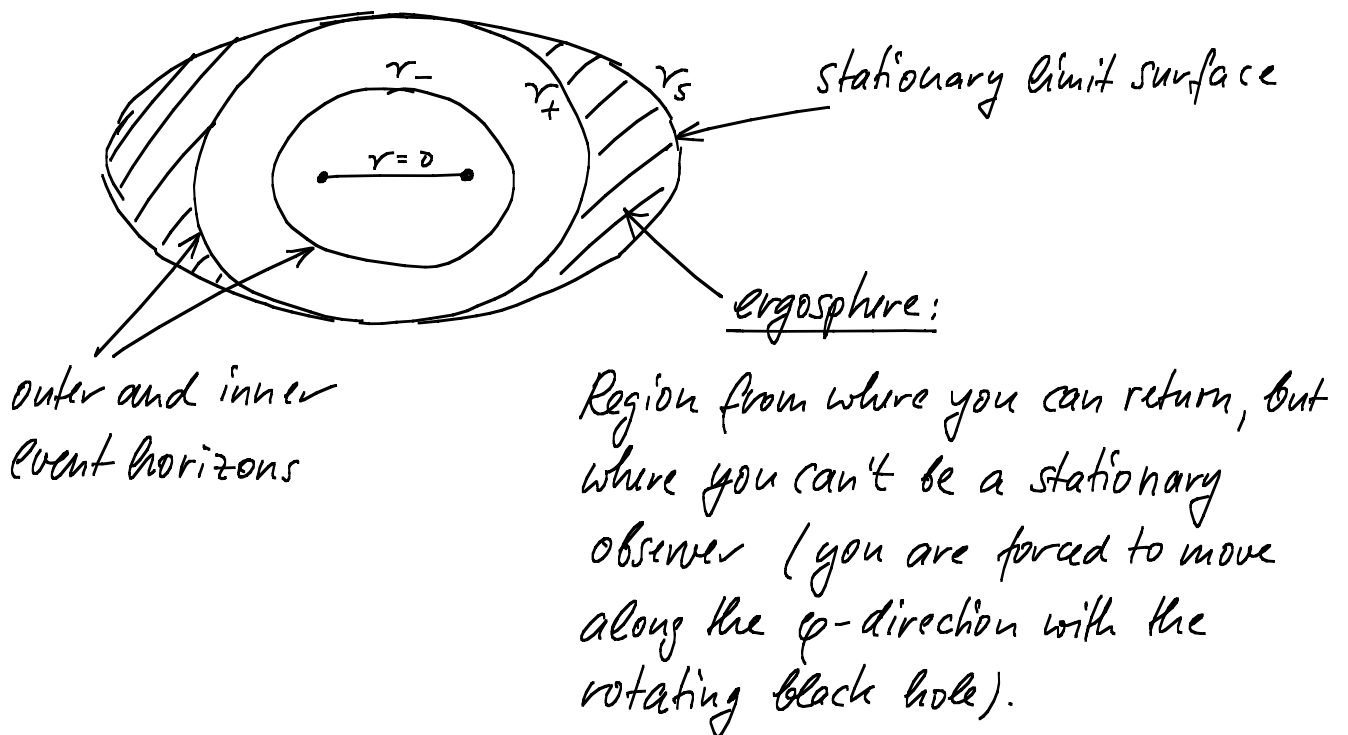 r₋
r₊
r_s
stationary limit surface
r = 0
ergosphere:
outer and inner
event horizons
Region from where you can return, but
where you can't be a stationary
observer (you are forced to move
along the φ-direction with the
rotating black hole).